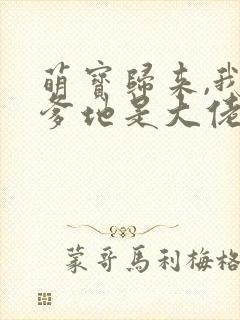 萌寶歸来,我
爹地是大佬
蒙哥馬利梅格